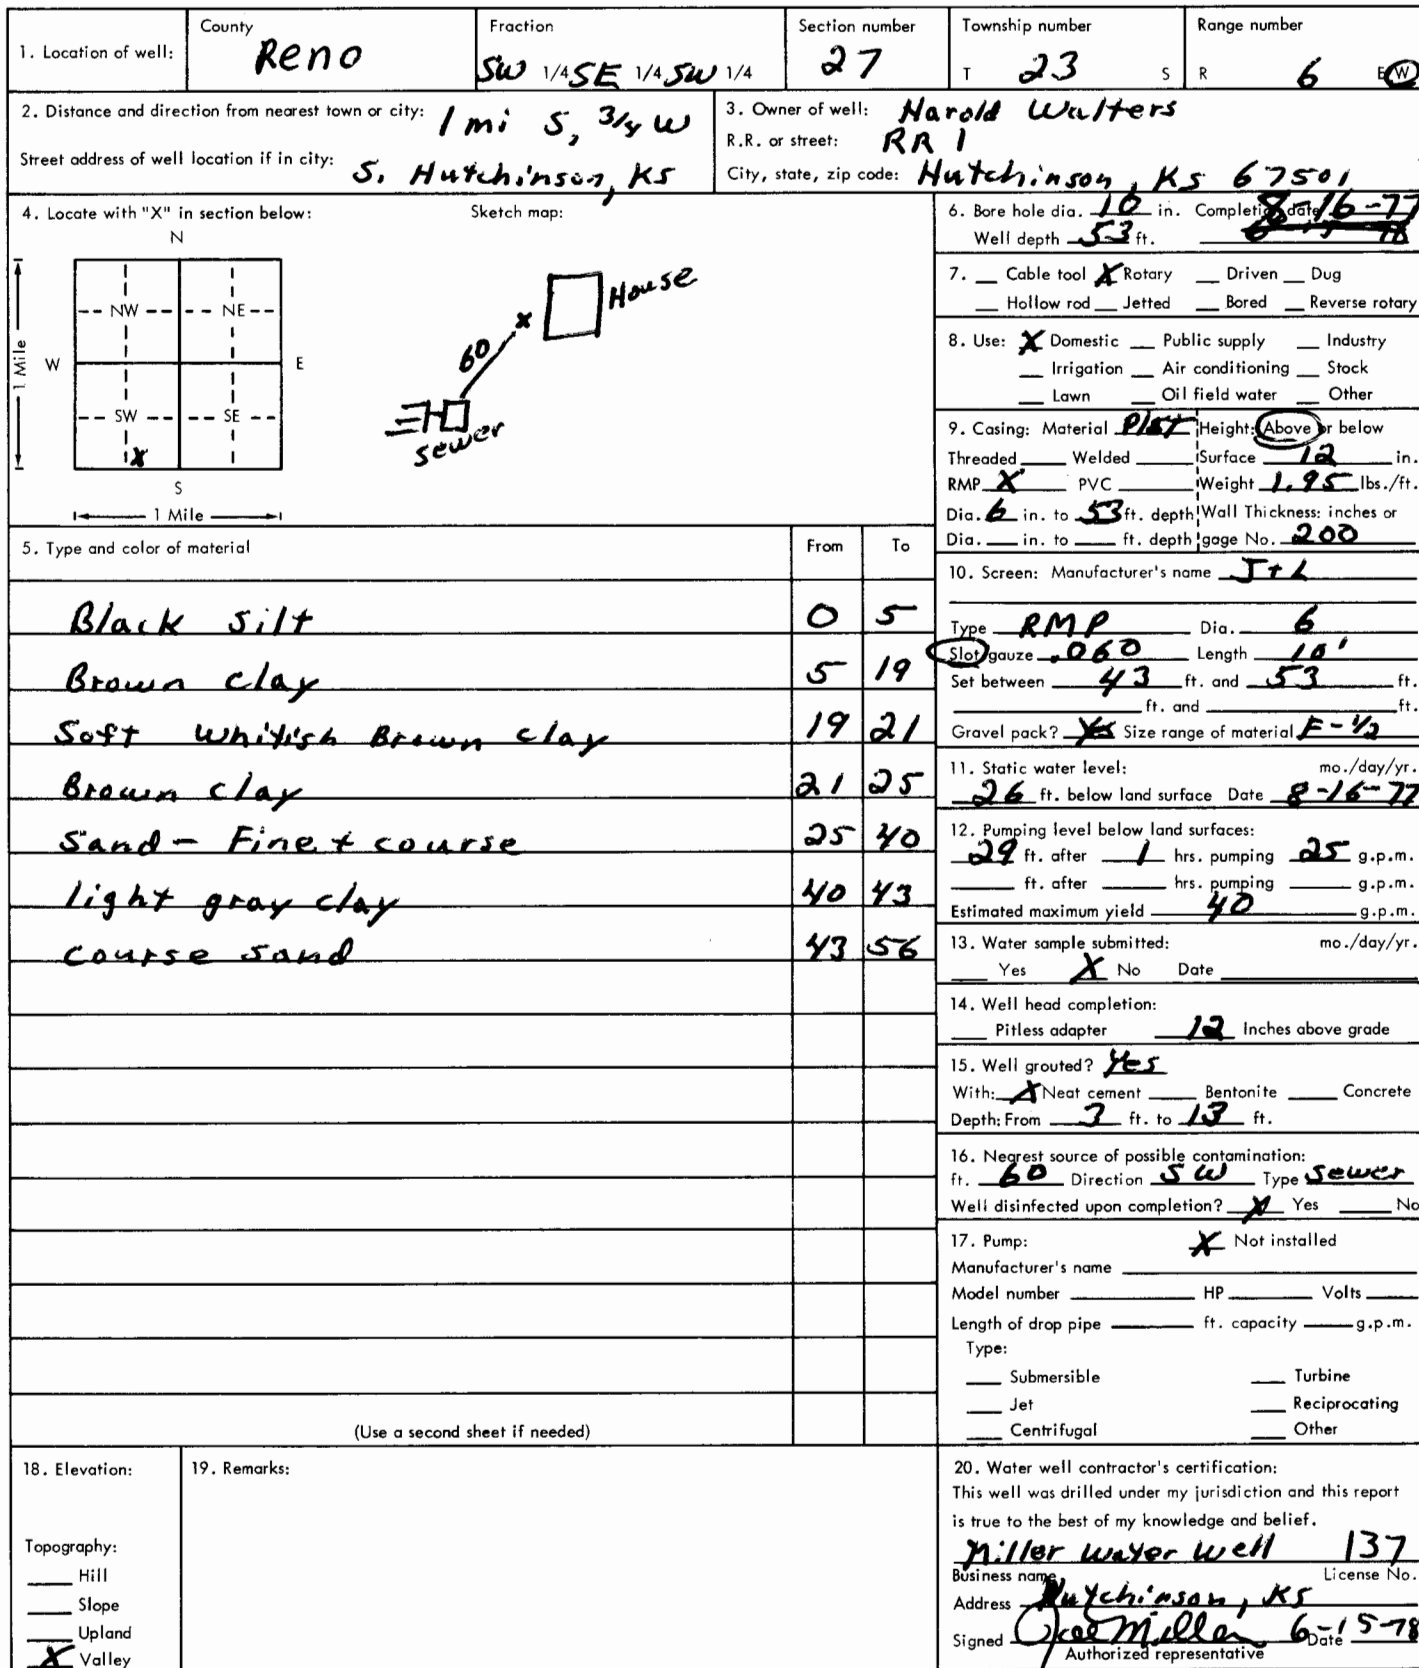 County Fraction Section number Township number Range number
1. Location of well: Reno SW 1/4 SE 1/4 SW 1/4 27 T 23 S R 6 E W
2. Distance and direction from nearest town or city: 1 mi S, 3/4 W
Street address of well location if in city: S. Hutchinson, KS
3. Owner of well: Harold Walters
R.R. or street: RR 1
City, state, zip code: Hutchinson, KS 67501
4. Locate with "X" in section below: Sketch map:
N
NW NE
W E
SW SE
X
S
1 Mile
1 Mile
House
x
60
sewer
5. Type and color of material From To
Black silt 0 5
Brown clay 5 19
Soft Whitish Brown clay 19 21
Brown clay 21 25
Sand - Fine + course 25 40
light gray clay 40 43
course sand 43 56
(Use a second sheet if needed)
6. Bore hole dia. 10 in. Completion date 8-16-77
Well depth 53 ft.
7. __ Cable tool X Rotary __ Driven __ Dug
__ Hollow rod __ Jetted __ Bored __ Reverse rotary
8. Use: X Domestic __ Public supply __ Industry
__ Irrigation __ Air conditioning __ Stock
__ Lawn __ Oil field water __ Other
9. Casing: Material Height: Above or below
Threaded ____ Welded ____ Surface 12 in.
RMP X PVC ____ Weight 1.95 lbs./ft.
Dia. 6 in. to 53 ft. depth Wall Thickness: inches or
Dia. ___ in. to ___ ft. depth gage No. 200
10. Screen: Manufacturer's name J+L
Type RMP Dia. 6
Slot/gauze .060 Length 10'
Set between 43 ft. and 53 ft.
____ ft. and ____ ft.
Gravel pack? Yes Size range of material F-1/2
11. Static water level: mo./day/yr.
26 ft. below land surface Date 8-16-77
12. Pumping level below land surfaces:
29 ft. after 1 hrs. pumping 25 g.p.m.
____ ft. after ____ hrs. pumping ____ g.p.m.
Estimated maximum yield 40 g.p.m.
13. Water sample submitted: mo./day/yr.
___ Yes X No Date ____
14. Well head completion:
___ Pitless adapter 12 Inches above grade
15. Well grouted? Yes
With: X Neat cement ____ Bentonite ____ Concrete
Depth: From 3 ft. to 13 ft.
16. Nearest source of possible contamination:
ft. 60 Direction SW Type Sewer
Well disinfected upon completion? X Yes ____ No
17. Pump: X Not installed
Manufacturer's name ____
Model number ____ HP ____ Volts ____
Length of drop pipe ____ ft. capacity ____ g.p.m.
Type:
___ Submersible ___ Turbine
___ Jet ___ Reciprocating
___ Centrifugal ___ Other
18. Elevation:
Topography:
___ Hill
___ Slope
___ Upland
X Valley
19. Remarks:
20. Water well contractor's certification:
This well was drilled under my jurisdiction and this report
is true to the best of my knowledge and belief.
Miller Water Well 137
Business name License No.
Address Hutchinson, KS
Signed Joe Miller Date 6-15-78
Authorized representative